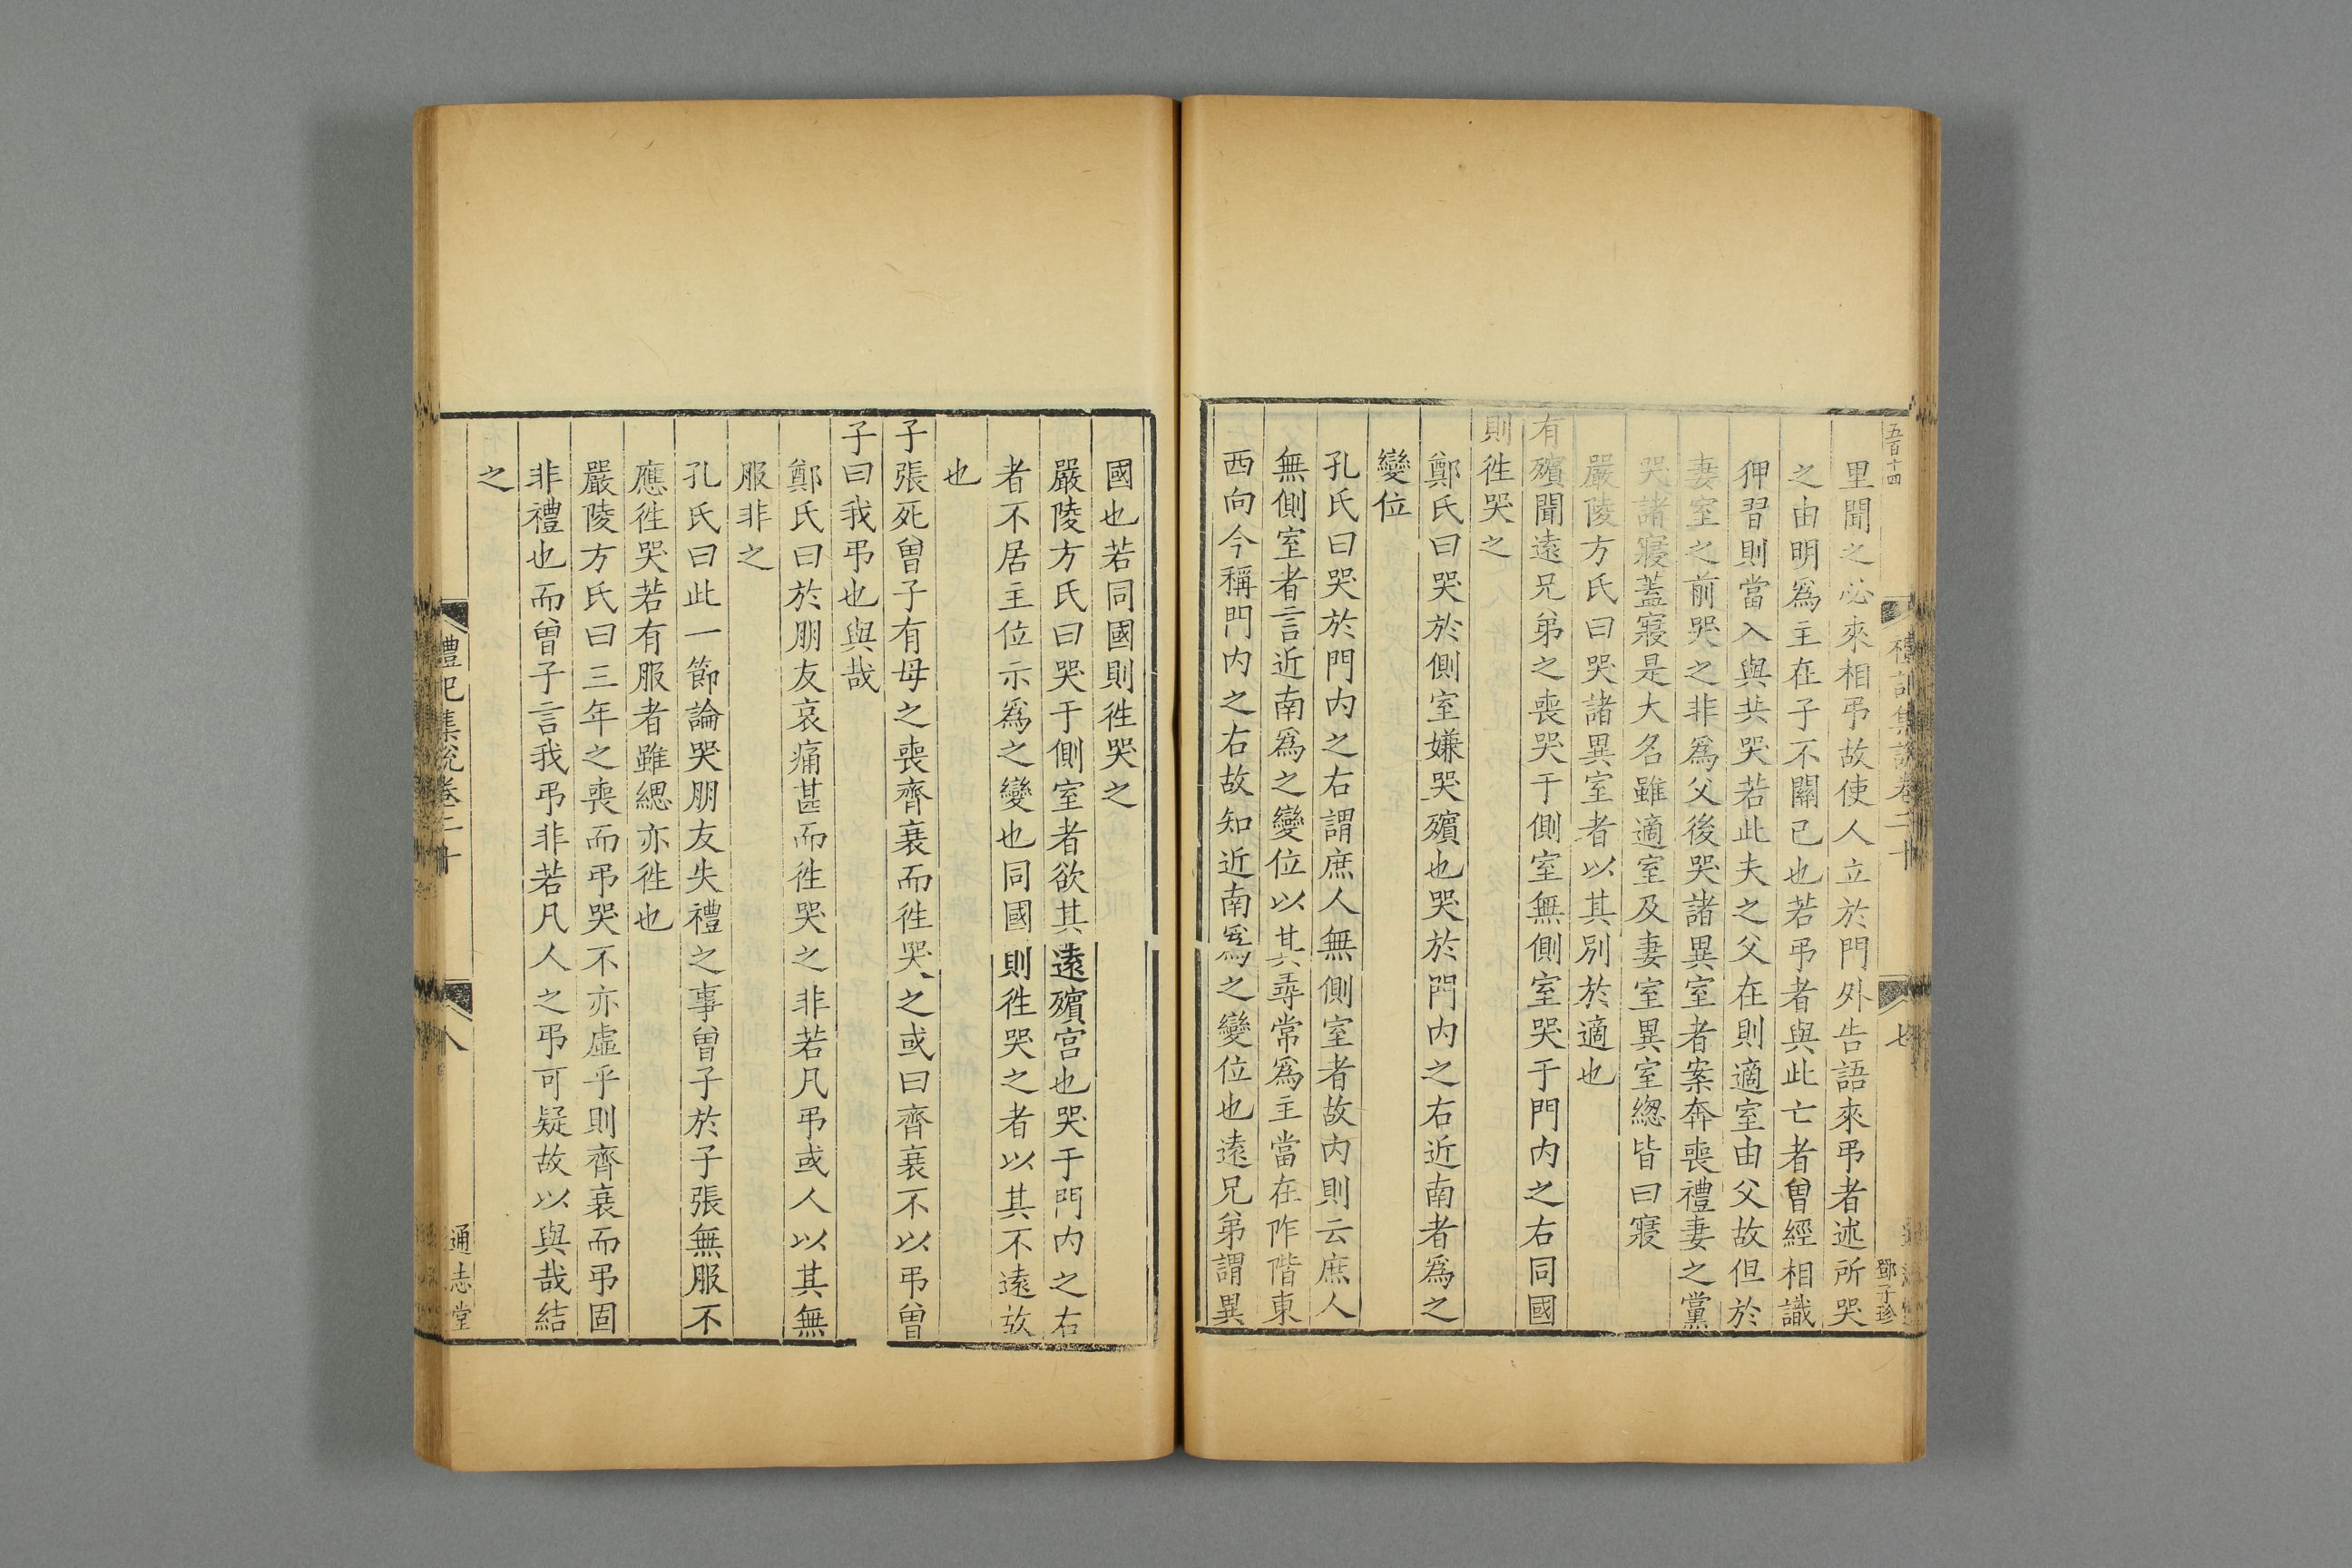 五百十四
里聞之必來相弔故使人立於門外告語來弔者述所哭
之由明爲主在子不關己也若弔者與此亡者曾經相識
狎習則當入與共哭若此夫之父在則適室由父故但於
妻室之前哭之非爲父後哭諸異室者案奔喪禮妻之黨
哭諸寢蓋寢是大名雖適室及妻室異室緫皆曰寢
嚴陵方氏曰哭諸異室者以其別於適也
有殯聞遠兄弟之喪哭于側室無側室哭于門內之右同國
則徃哭之
鄭氏曰哭於側室嫌哭殯也哭於門內之右近南者爲之
變位
孔氏曰哭於門內之右謂庶人無側室者故內則云庶人
無側室者言近南爲之變位以其尋常爲主當在阼階東
西向今稱門內之右故知近南爲之變位也遠兄弟謂異
禮記集說卷二十
七
鄧子珍
國也若同國則徃哭之
嚴陵方氏曰哭于側室者欲其遠殯宮也哭于門內之右
者不居主位示爲之變也同國則徃哭之者以其不遠故
也
子張死曾子有母之喪齊衰而徃哭之或曰齊衰不以弔曾
子曰我弔也與哉
鄭氏曰於朋友哀痛甚而徃哭之非若凡弔或人以其無
服非之
孔氏曰此一節論哭朋友失禮之事曾子於子張無服不
應徃哭若有服者雖緦亦徃也
嚴陵方氏曰三年之喪而弔哭不亦虛乎則齊衰而弔固
非禮也而曾子言我弔非若凡人之弔可疑故以與哉結
之
禮記集說卷二十
八
通志堂